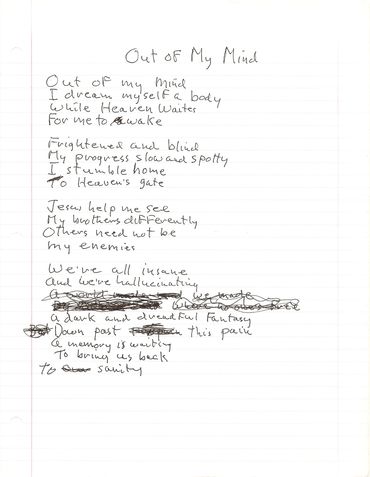 Out of My Mind
Out of my mind
I dream myself a body
While Heaven Waits
For me to Awake
Frightened and blind
My progress slow and spotty
I stumble home
To Heaven's gate
Jesus help me see
My brothers differently
Others need not be
my enemies
We're all insane
And we're hallucinating
A world we made
A dark and dreadful Fantasy
Down past this pain
A memory is waiting
To bring us back
To sanity